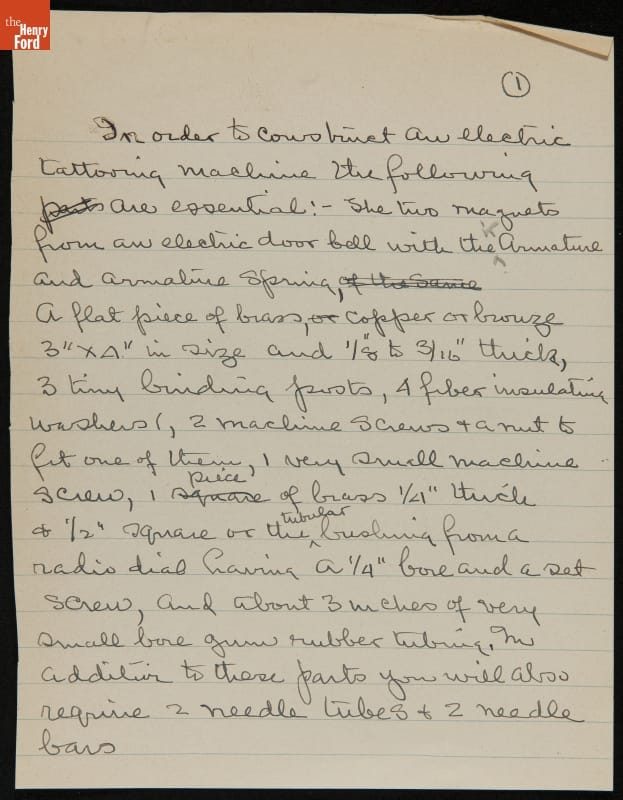 the
Henry
Ford
1
In order to construct an electric
tattooing machine the following
parts are essential:- The two magnets
from an electric door bell with the Armature
and armature spring, of the same
A flat piece of brass, or copper or bronze
3" x 4" in size and 1/8 to 3/16" thick,
3 tiny binding posts, 4 fiber insulating
washers, 2 machine screws + a nut to
fit one of them, 1 very small machine
piece
screw, 1 square of brass 1/4" thick
tubular
+ 1/2" square or the bushing from a
radio dial having a 1/4" bore and a set
screw, and about 3 inches of very
small bore gum rubber tubing. In
addition to these parts you will also
require 2 needle tubes + 2 needle
bars